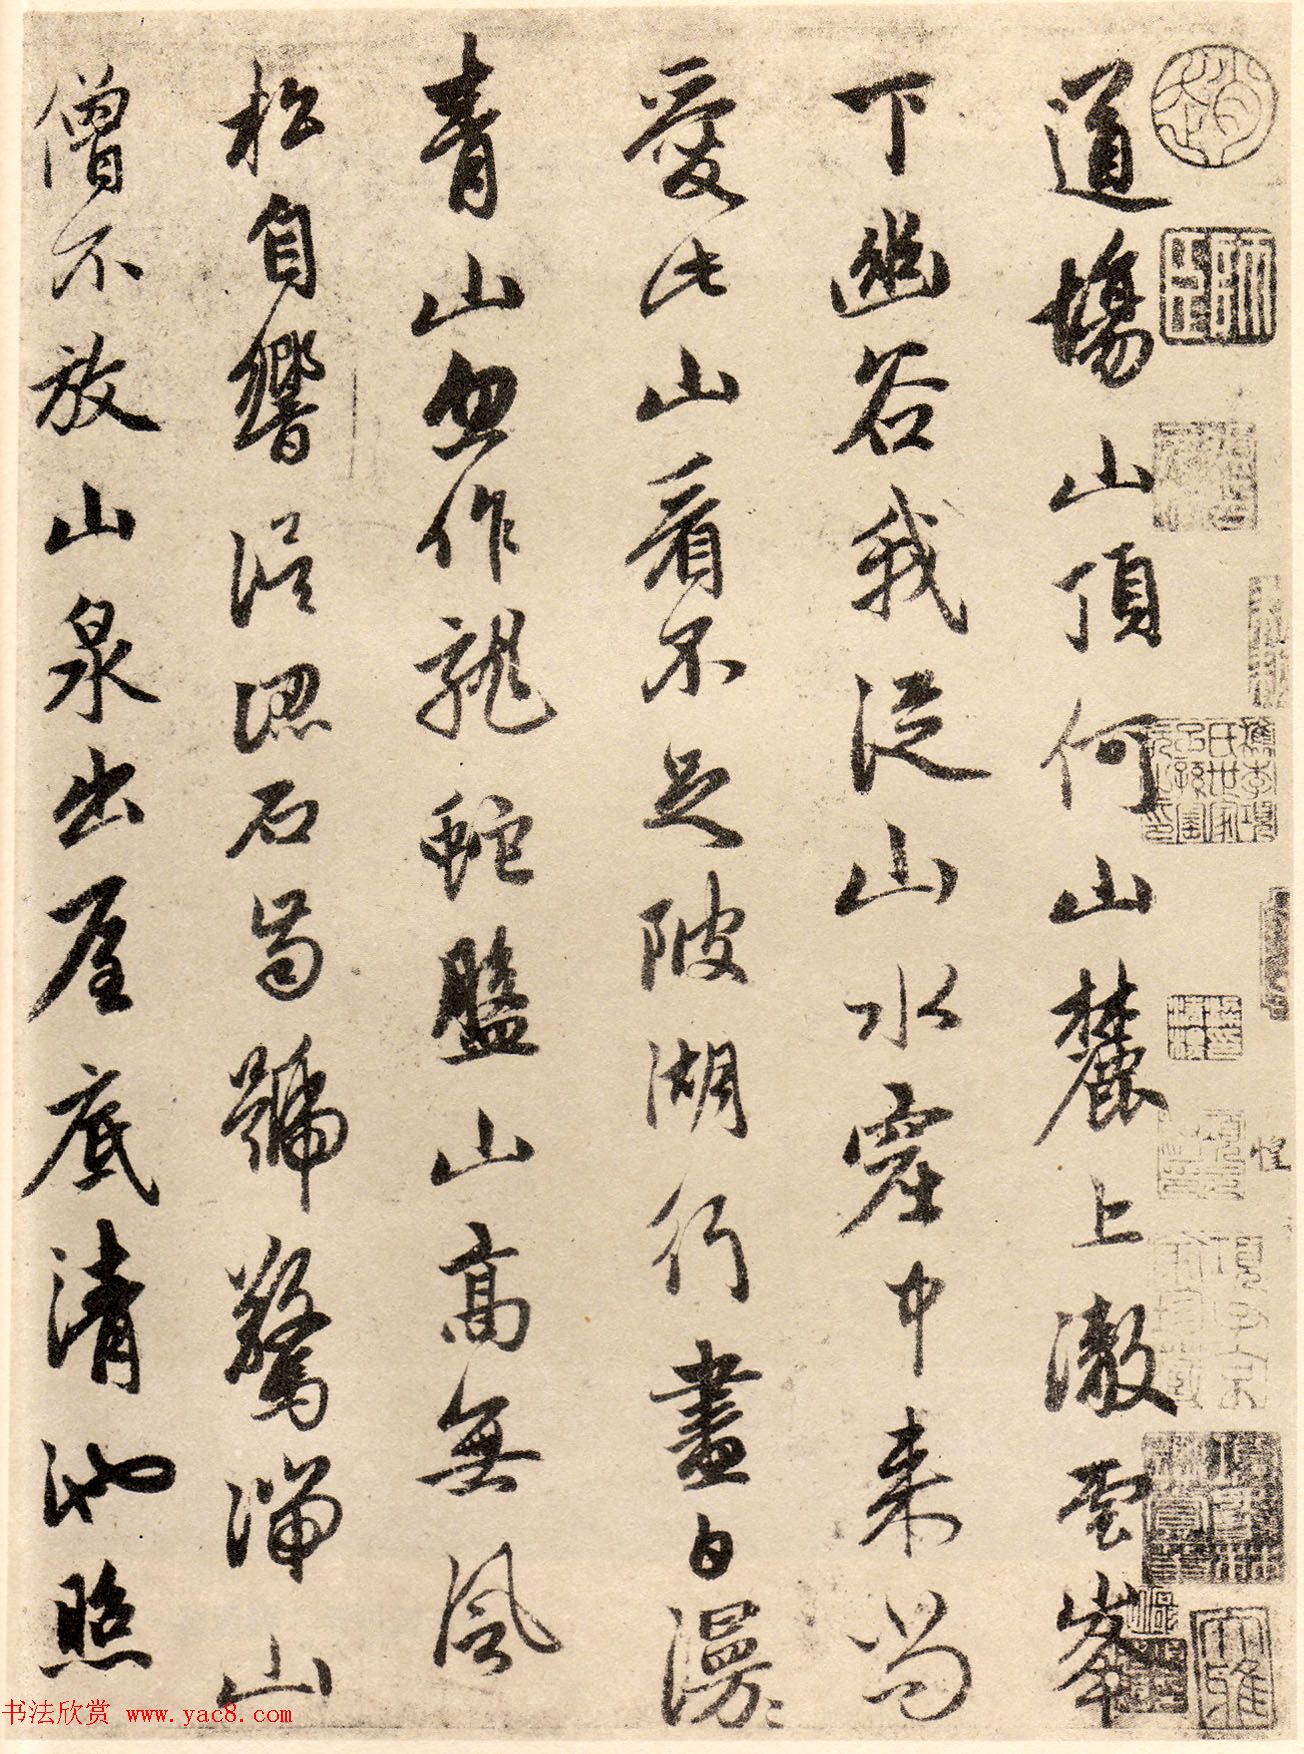 道場山頂何山麓上澈雲峯
下幽谷我從山水窟中来尚
愛此山看不足陂湖行盡白漫〻
青山忽作龍蛇盤山高無風
松自響誤認石齒號驚湍山
僧不放山泉出屋底清池照
項子京家珍藏
項墨林鑑賞章
大雅
书法欣赏 www.yac8.com